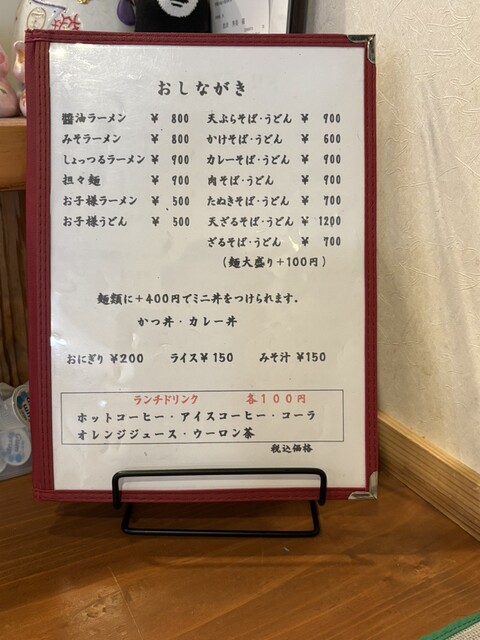 おしながき
醤油ラーメン ¥ 800
みそラーメン ¥ 800
しょっつるラーメン ¥ 900
担々麺 ¥ 900
お子様ラーメン ¥ 500
お子様うどん ¥ 500
天ぷらそば・うどん ¥ 900
かけそば・うどん ¥ 600
カレーそば・うどん ¥ 900
肉そば・うどん ¥ 900
たぬきそば・うどん ¥ 700
天ざるそば・うどん ¥ 1200
ざるそば・うどん ¥ 700
(麺大盛り+100円)
麺類に+400円でミニ丼をつけられます。
かつ丼・カレー丼
おにぎり ¥200 ライス¥150 みそ汁¥150
ランチドリンク 各100円
ホットコーヒー・アイスコーヒー・コーラ
オレンジジュース・ウーロン茶
税込価格